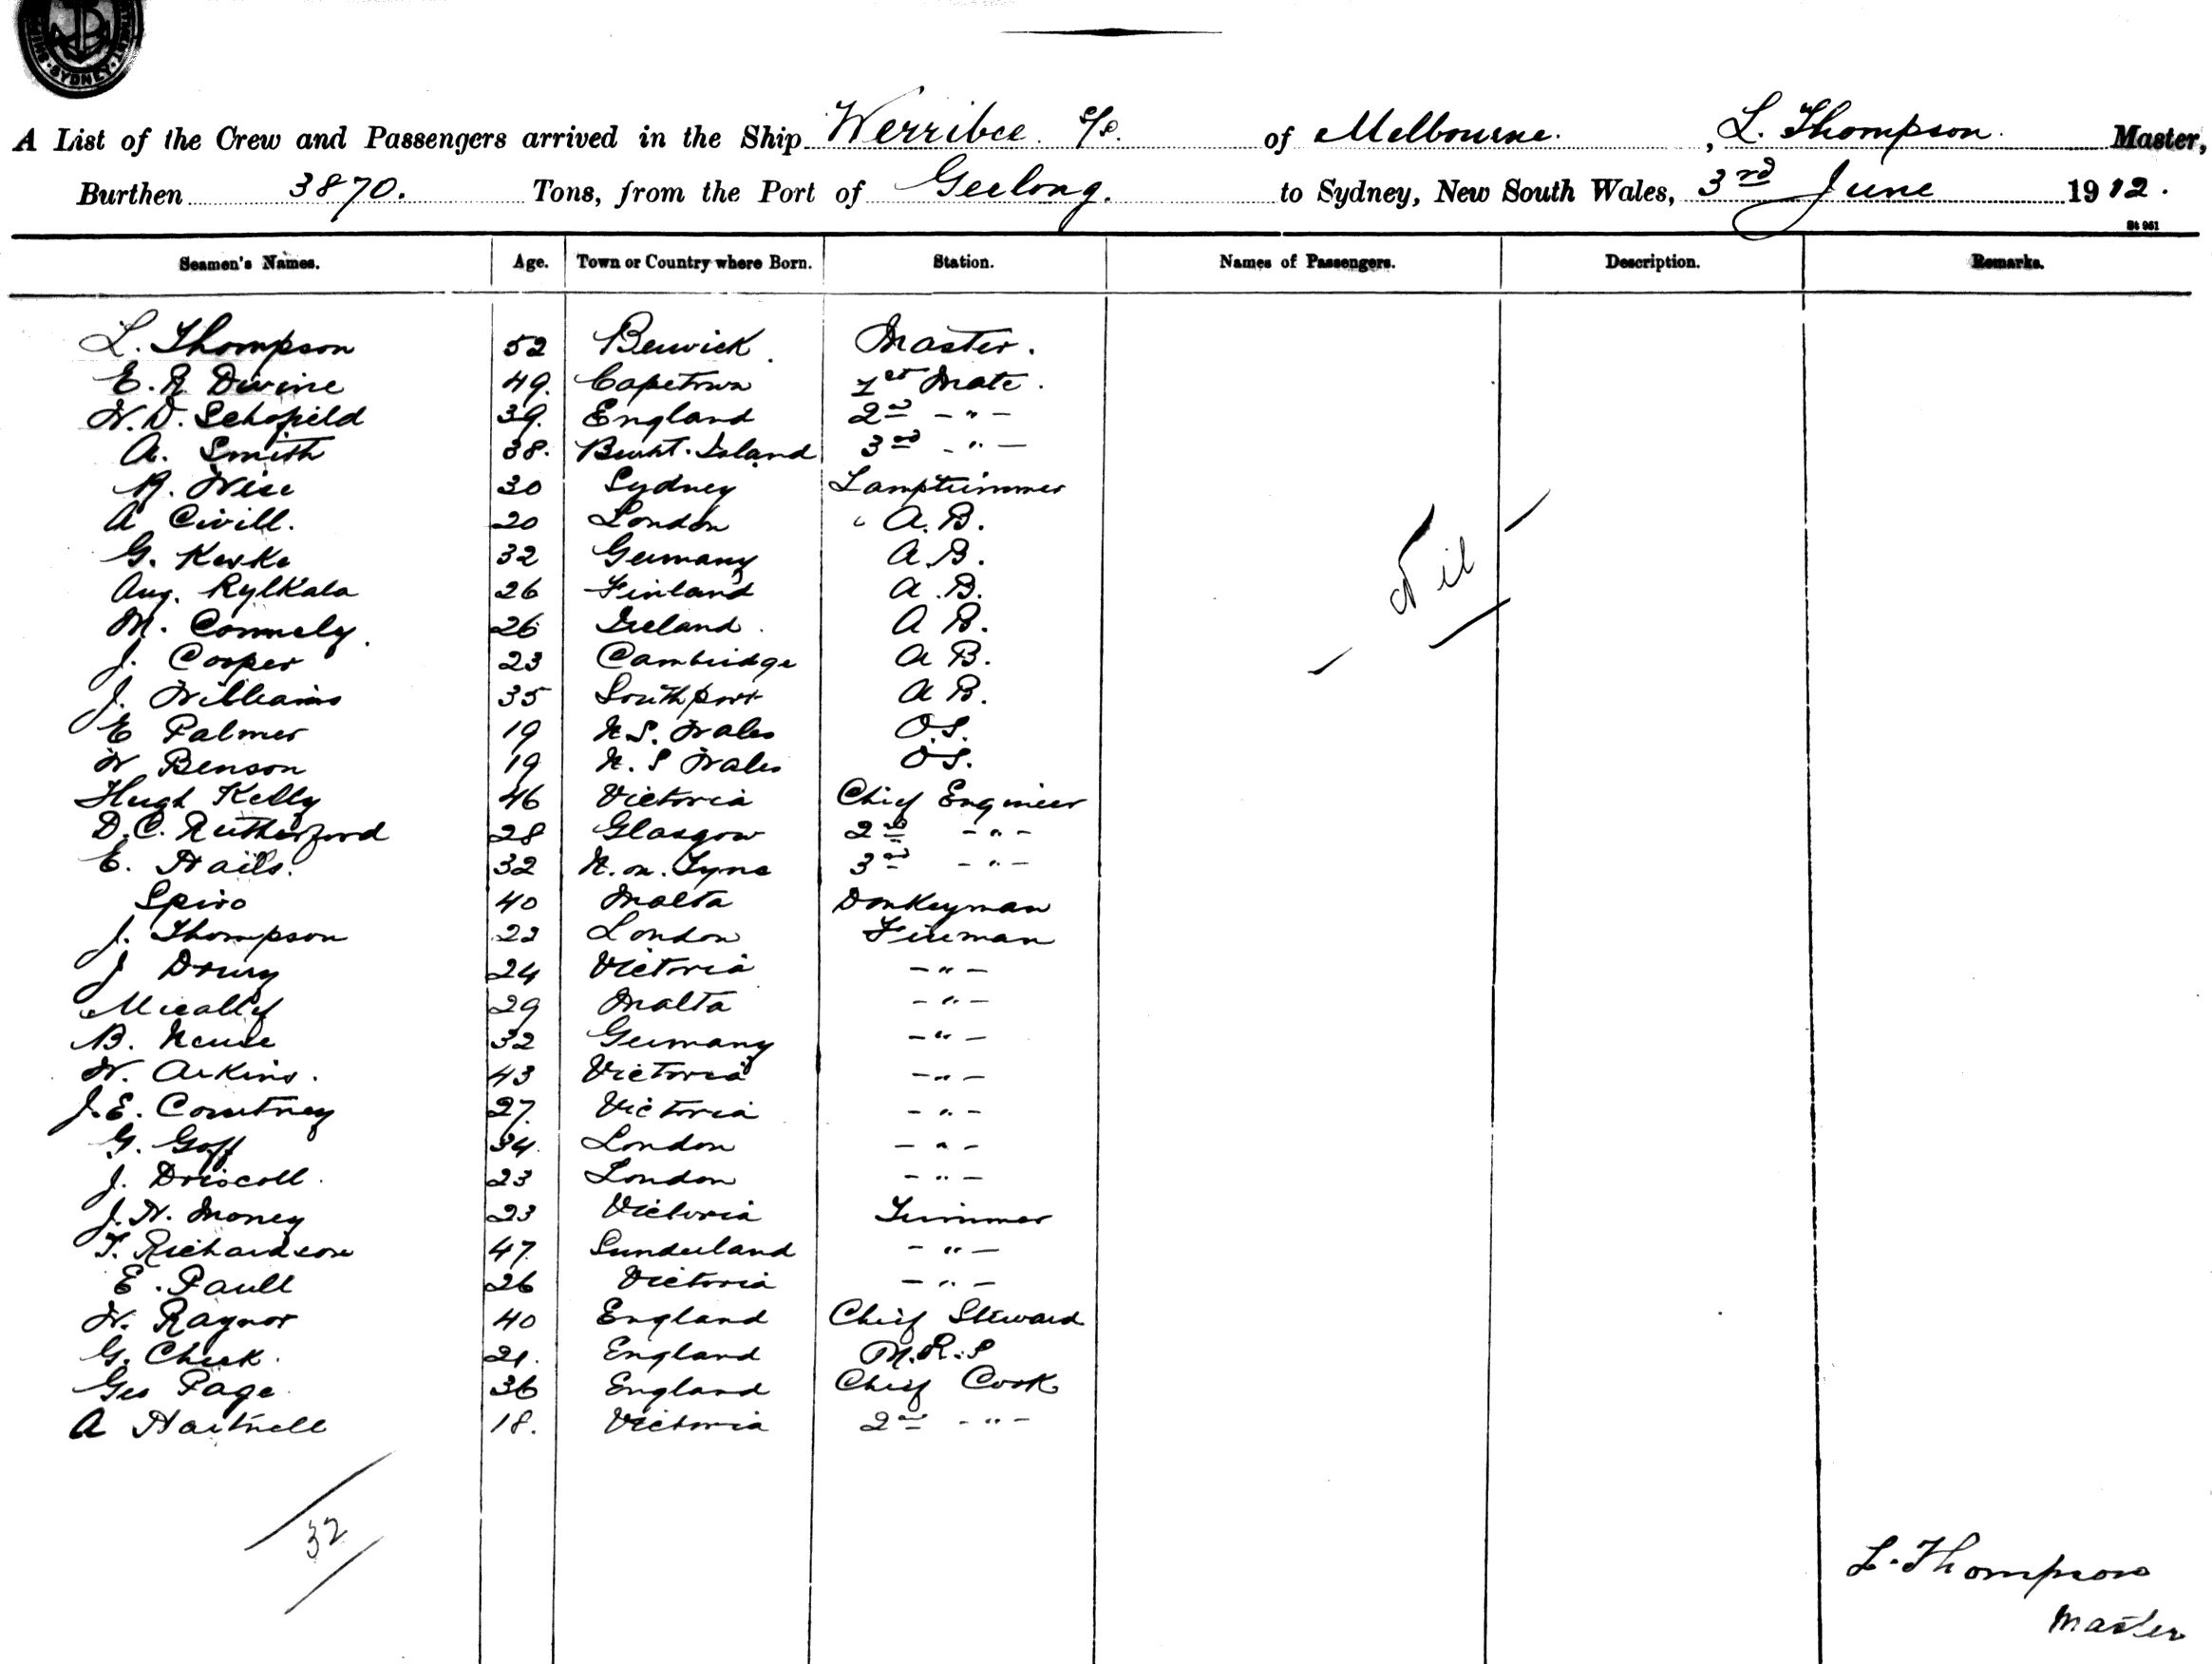 SYDNEY
A List of the Crew and Passengers arrived in the Ship Werribee s/s. of Melbourne. , L. Thompson. Master,
Burthen 3870. Tons, from the Port of Geelong. to Sydney, New South Wales, 3rd June 1912.
St 961
Seamen's Names. Age. Town or Country where Born. Station. Names of Passengers. Description. Remarks.
L. Thompson 52 Berwick. Master.
E. R Divine 49. Capetown 1st Mate.
W. D. Schofield 39. England 2nd - " -
A. Smith 38. Burnt. Island 3rd - " -
R. Wise 30 Sydney Lamptrimmer
A Civill. 20 London A. B.
G. Keske 32 Germany A. B.
Aug. Rylkala 26 Finland A. B.
M. Connely. 26 Ireland. A B.
J. Cooper 23 Cambridge A B.
J. Williams 35 Southport A B.
E Palmer 19 N. S. Wales O. S.
W Benson 19 N. S Wales O S.
Hugh Kelly 46 Victoria Chief Engineer
D. C. Rutherford 28 Glasgow 2nd - " -
E. Hails. 32 N. on. Tyne 3rd - " -
Spiro 40 Malta Donkeyman
J. Thompson 22 London Fireman
J Drury 24 Victoria - " -
Micallef 29 Malta - " -
B. 32 Germany - " -
W. Arkins. 43 Victoria - " -
J. E. Courtney 27. Victoria - " -
G. Goff 34. London - " -
J. Driscoll. 23 London - " -
J. H. Money 23 Victoria Trimmer
T. Richardson 47. Sunderland - " -
E. Paull 26 Victoria - " -
W. Raynor 40 England Chief Steward
G. Cheek. 21. England M. R. S
Geo Page 36 England Chief Cook
A Hartnell 18. Victoria 2nd - " -
- Nil -
32
L. Thompson
Master